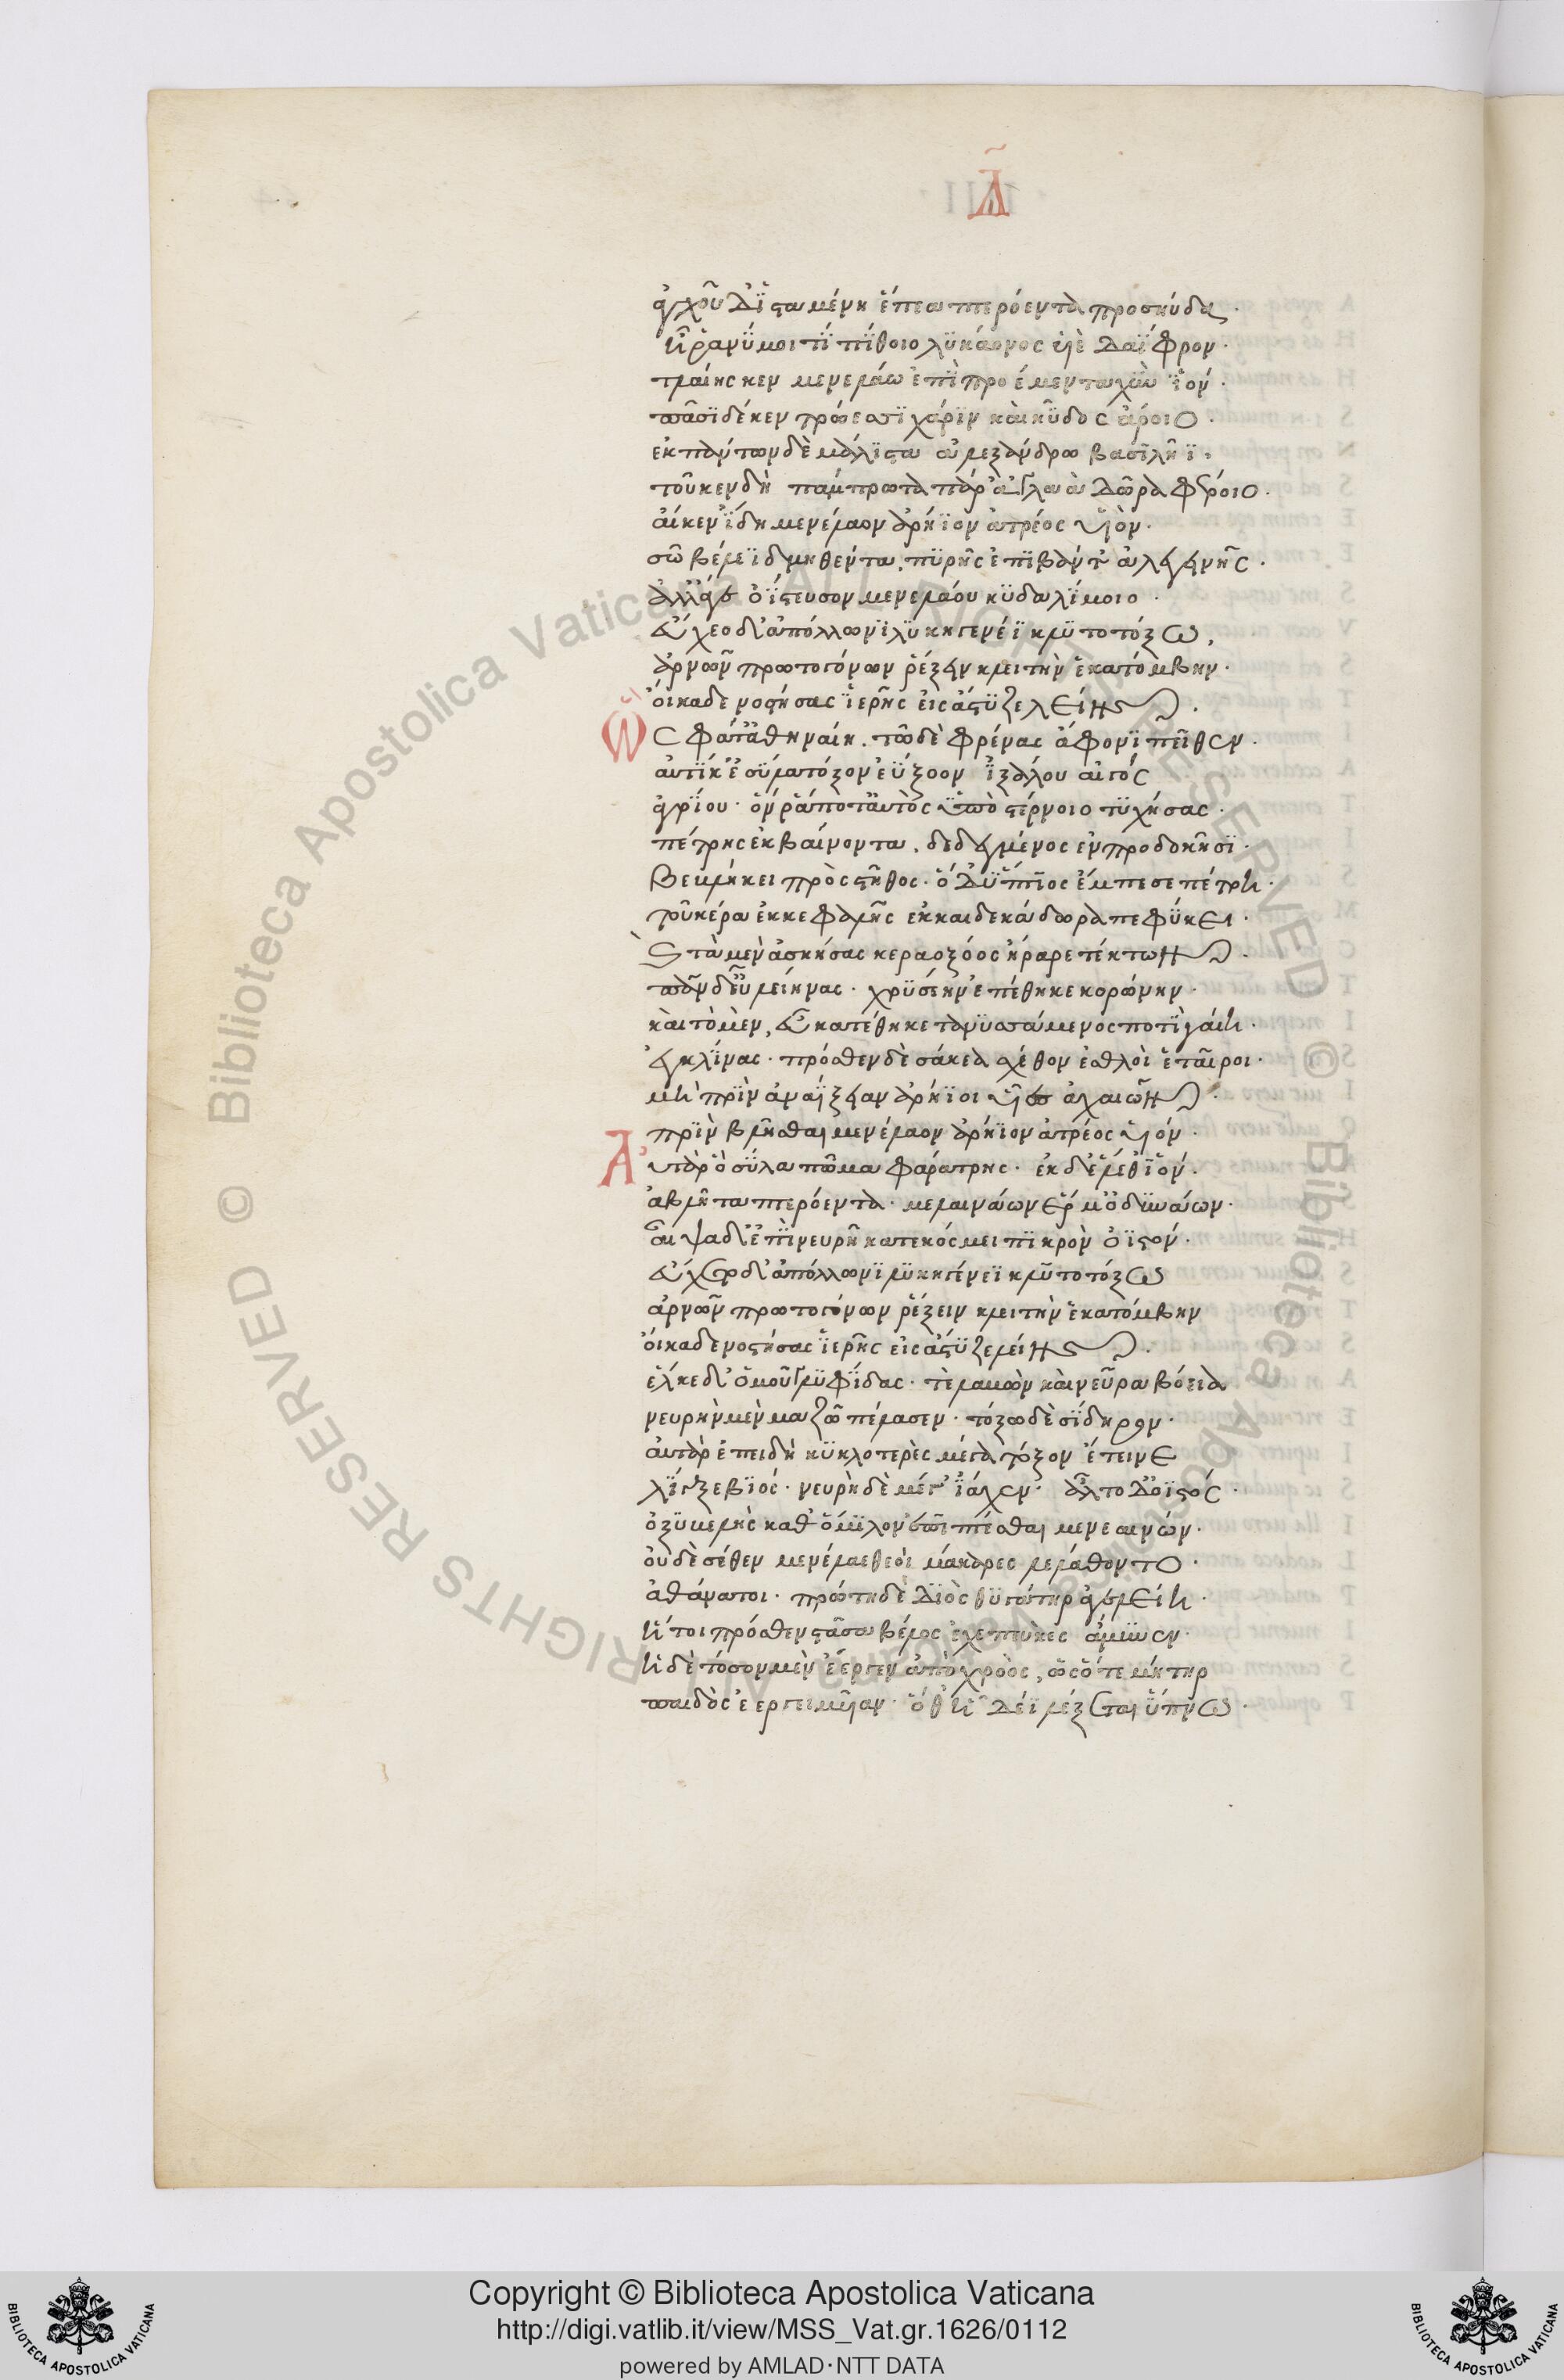 Δ̃
ἀγχοῦ δ' ϊσταμένη ἔπεα πτερόεντα προσηύδα·
ἦ ῥά νύ μοί τι πίθοιο λυκάονος υἱὲ δαΐφρον·
τλαίης κεν μενελάω ἐπιπροέμεν ταχὺν ἰόν·
πᾶσι δέ κεν τρώεσσι χάριν καὶ κῦδος ἄροιο·
ἐκ πάντων δὲ μάλιστα ἀλεξάνδρω βασιλῆϊ·
τοῦ κεν δὴ πάμπρωτα πὰρ' ἀγλαὰ δῶρα φέροιο·
αἴ κεν ἴδη μενέλαον ἀρήϊον ἀτρέος υἱὸν·
σῶ βέλεϊ δμηθέντα. πυρῆς ἐπιβάντ' ἀλεγεινῆς·
ἀλλ' ἄγ' ὀΐστευσον μενελάου κυδαλίμοιο·
εὔχεο δ' ἀπόλλωνι λυκηγενέϊ κλυτοτόξω,
ἀρνῶν πρωτογόνων ῥέξειν κλειτὴν ἑκατόμβην·
οἴκαδε νοστήσας ἱερῆς εἰς ἄστυ ζελείης·
Ὣς φάτ' ἀθηναίη. τῶ δὲ φρένας ἄφρονι πεῖθεν·
αὐτίκ' ἐσύλα τόξον ἐΰξοον ἰξάλου αἰγός
ἀγρίου· ὅν ῥά ποτ' αὐτὸς ὑπὸ στέρνοιο τυχήσας·
πέτρης ἐκβαίνοντα. δεδεγμένος ἐν προδοκῆσι·
βεβλήκει πρὸς στῆθος· ὁ δ' ὕπτιος ἔμπεσε πέτρη·
τοῦ κέρα ἐκ κεφαλῆς ἑκκαιδεκάδωρα πεφύκει·
καὶ τὰ μὲν ἀσκήσας κεραοξόος ἤραρε τέκτων·
πᾶν δ' εὖ λειήνας· χρυσέην ἐπέθηκε κορώνην·
καὶ τὸ μὲν, εὖ κατέθηκε τανυσσάμενος ποτὶ γαίη·
ἀγκλίνας· πρόσθεν δὲ σάκεα σχέθον ἐσθλοὶ ἑταῖροι·
μὴ πρὶν ἀναΐξειαν ἀρήϊοι υἷες ἀχαιῶν·
πρὶν βλῆσθαι μενέλαον ἀρήϊον ἀτρέος υἱόν·
Αὐτὰρ ὁ σύλα πῶμα φαρέτρης· ἐκ δ' ἕλετ' ἰόν·
ἀβλῆτα πτερόεντα· μελαινάων ἕρμ' ὀδυνάων·
αἶψα δ' ἐπὶ νευρῆ κατεκόσμει πικρὸν ὀϊστόν·
εὔχετο δ' ἀπόλλωνι λυκηγενέϊ κλυτοτόξω
ἀρνῶν πρωτογόνων ῥέξειν κλειτὴν ἑκατόμβην
οἴκαδε νοστήσας ἱερῆς εἰς ἄστυ ζελείης·
ἕλκε δ' ὁμοῦ γλυφίδας· τε λαβὼν καὶ νεῦρα βόεια
νευρὴν μὲν μαζῶ πέλασεν· τόξω δὲ σίδηρον·
αὐτὰρ ἐπειδὴ κυκλοτερὲς μέγα τόξον ἔτεινε
λίγξε βιός· νευρὴ δὲ μέγ' ἴαχεν· ἆλτο δ' ὀϊστός·
ὀξυβελὴς καθ' ὅμιλον ἐπιπτέσθαι μενεαίνων·
οὐδὲ σέθεν μενέλαε θεοὶ μάκαρες λελάθοντο·
ἀθάνατοι· πρώτη δὲ Διὸς θυγάτηρ ἀγελείη·
ἥ τοι πρόσθεν στᾶσα βέλος ἐχεπευκὲς ἄμυνεν·
ἡ δὲ τόσον μὲν ἔεργεν ἀπὸ χροὸς, ὡς ὅτε μήτηρ
παιδὸς ἐέργει μυῖαν· ὅθ' ἡδέϊ λέξεται ὕπνω·
Copyright © Biblioteca Apostolica Vaticana
http://digi.vatlib.it/view/MSS_Vat.gr.1626/0112
powered by AMLAD·NTT DATA